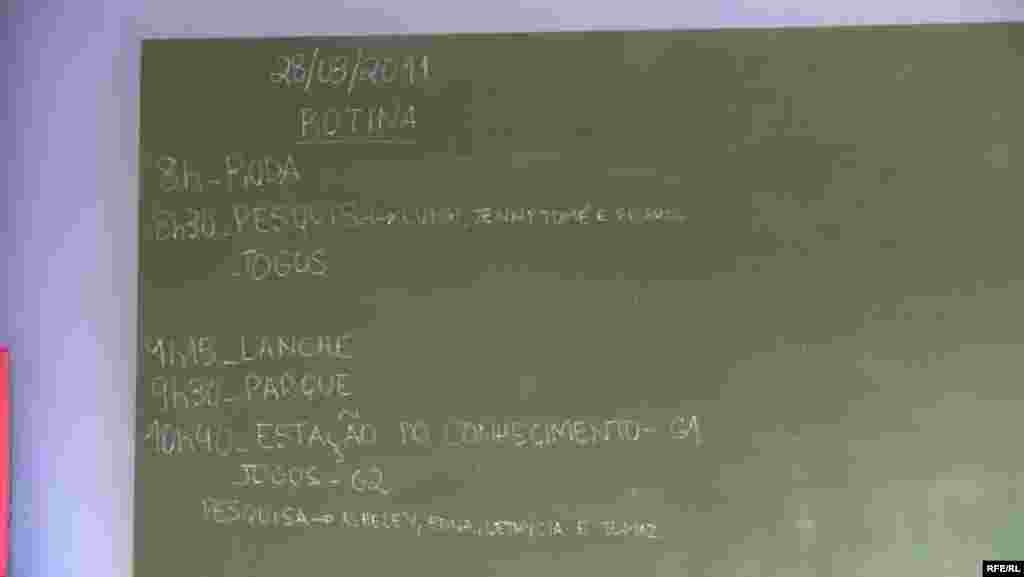 28/03/2011
ROTINA
8h - RODA
8h30 - PESQUISA → JENNY TOMÉ E
JOGOS
9h15 - LANCHE
9h30 - PARQUE
10h40 - ESTAÇÃO DO CONHECIMENTO - G1
JOGOS - G2
PESQUISA → E
RFE/RL